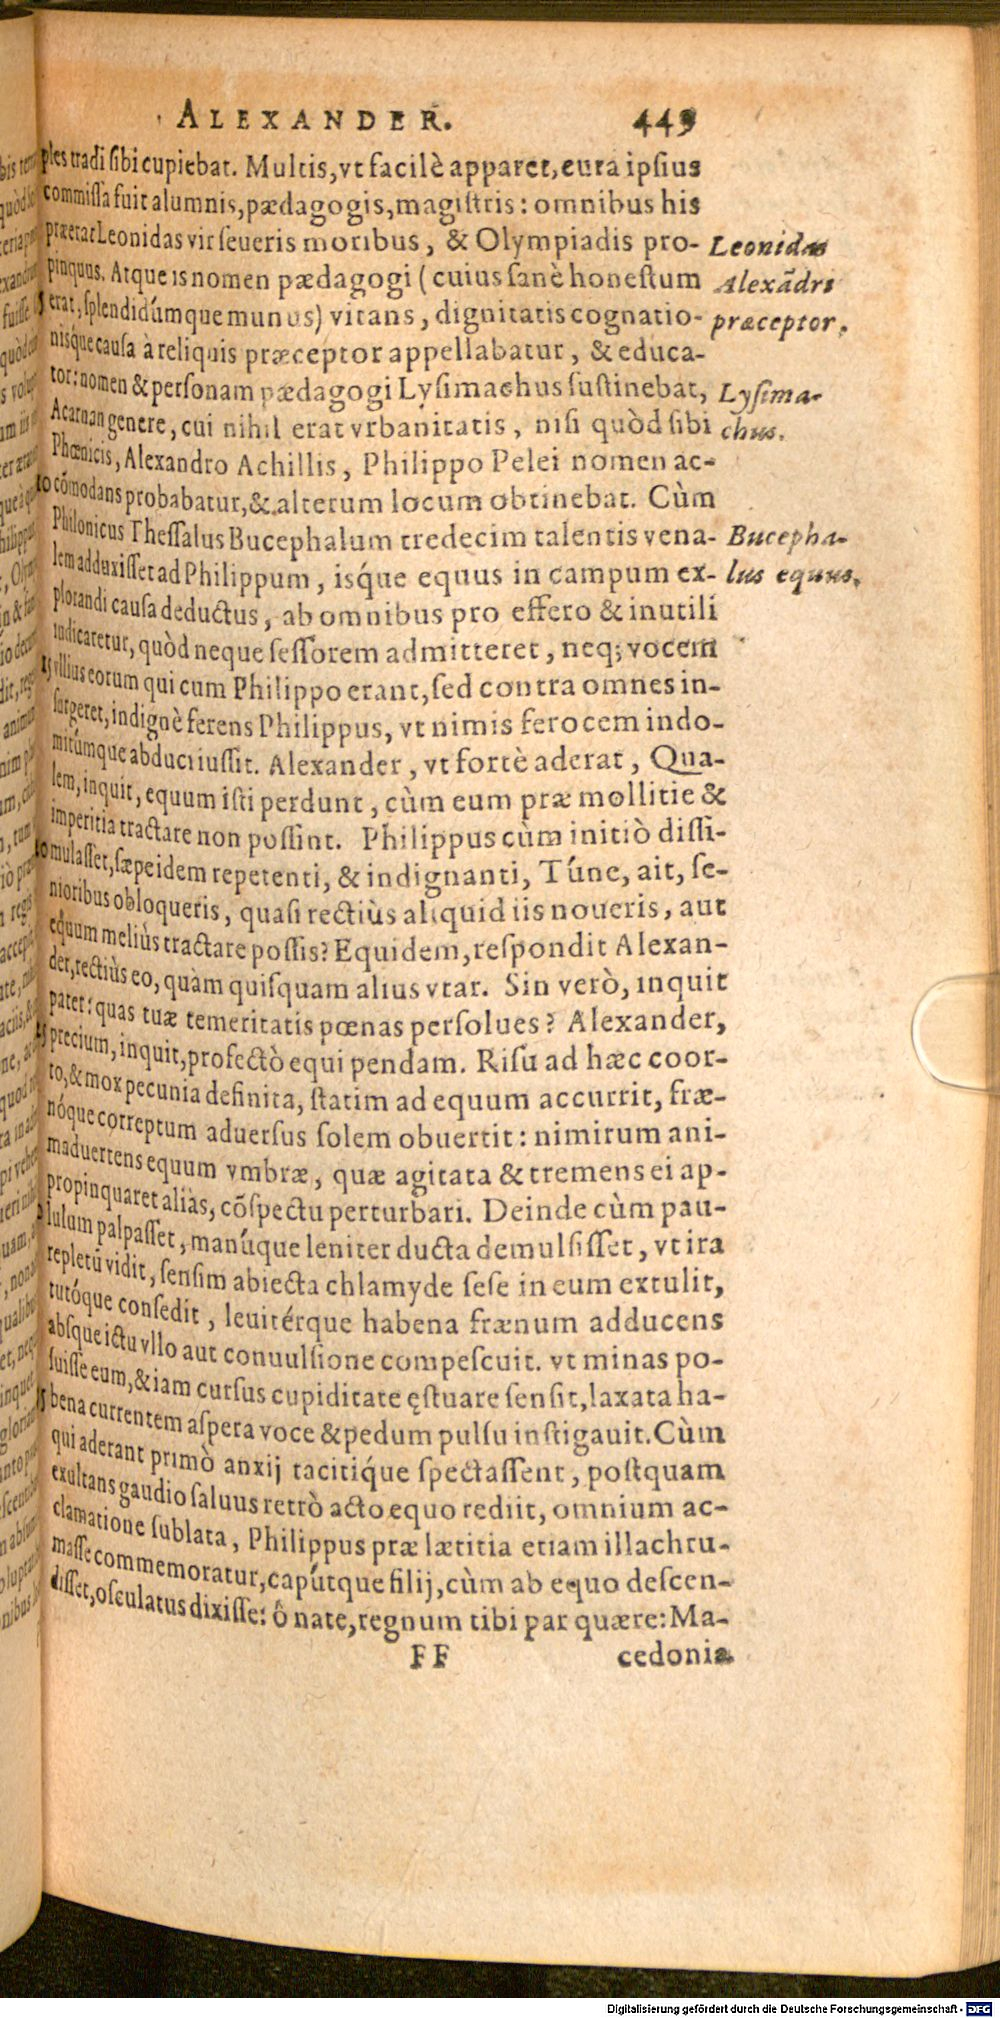 ALEXANDER. 449
ples tradi sibi cupiebat. Multis, vt facilè apparet, cura ipsius
commissa fuit alumnis, pædagogis, magistris: omnibus his
præerat Leonidas vir seueris moribus, & Olympiadis pro-
Leonidas
pinquus. Atque is nomen pædagogi (cuius sanè honestum
Alexãdri
5 erat, splendidúmque munus) vitans, dignitatis cognatio-
præceptor.
nisque causa à reliquis præceptor appellabatur, & educa-
tor: nomen & personam pædagogi Lysimachus sustinebat,
Lysima-
Acarnan genere, cui nihil erat vrbanitatis, nisi quòd sibi
chus.
Phœnicis, Alexandro Achillis, Philippo Pelei nomen ac-
10 cómodans probabatur, & alterum locum obtinebat. Cùm
Philonicus Thessalus Bucephalum tredecim talentis vena-
Bucepha-
lem adduxisset ad Philippum, isq́ue equus in campum ex-
lus equus.
plorandi causa deductus, ab omnibus pro effero & inutili
indicaretur, quòd neque sessorem admitteret, neq; vocem
15 vllius eorum qui cum Philippo erant, sed contra omnes in-
surgeret, indignè ferens Philippus, vt nimis ferocem indo-
mitúmque abduci iussit. Alexander, vt fortè aderat, Qua-
lem, inquit, equum isti perdunt, cùm eum præ mollitie &
imperitia tractare non possint. Philippus cùm initiò dissi-
20 mulasset, sæpe idem repetenti, & indignanti, Túne, ait, se-
nioribus obloqueris, quasi rectiùs aliquid iis noueris, aut
equum meliùs tractare possis? Equidem, respondit Alexan-
der, rectiùs eo, quàm quisquam alius vtar. Sin verò, inquit
pater: quas tuæ temeritatis pœnas persolues? Alexander,
25 precium, inquit, profectò equi pendam. Risu ad hæc coor-
to, & mox pecunia definita, statim ad equum accurrit, fræ-
nóque correptum aduersus solem obuertit: nimirum ani-
maduertens equum vmbræ, quæ agitata & tremens ei ap-
propinquaret aliàs, cõspectu perturbari. Deinde cùm pau-
lulum palpasset, manúque leniter ducta demulsisset, vt ira
repletũ vidit, sensim abiecta chlamyde sese in eum extulit,
tutóque consedit, leuitérque habena frænum adducens
absque ictu vllo aut conuulsione compescuit. vt minas po-
suisse eum, & iam cursus cupiditate ęstuare sensit, laxata ha-
35 bena currentem aspera voce & pedum pulsu instigauit. Cùm
qui aderant primò anxij tacitiq́ue spectassent, postquam
exultans gaudio saluus retrò acto equo rediit, omnium ac-
clamatione sublata, Philippus præ lætitia etiam illachru-
masse commemoratur, capútque filij, cùm ab equo descen-
disset, osculatus dixisse: ô nate, regnum tibi par quære: Ma-
FF cedonia
Digitalisierung gefördert durch die Deutsche Forschungsgemeinschaft - DFG